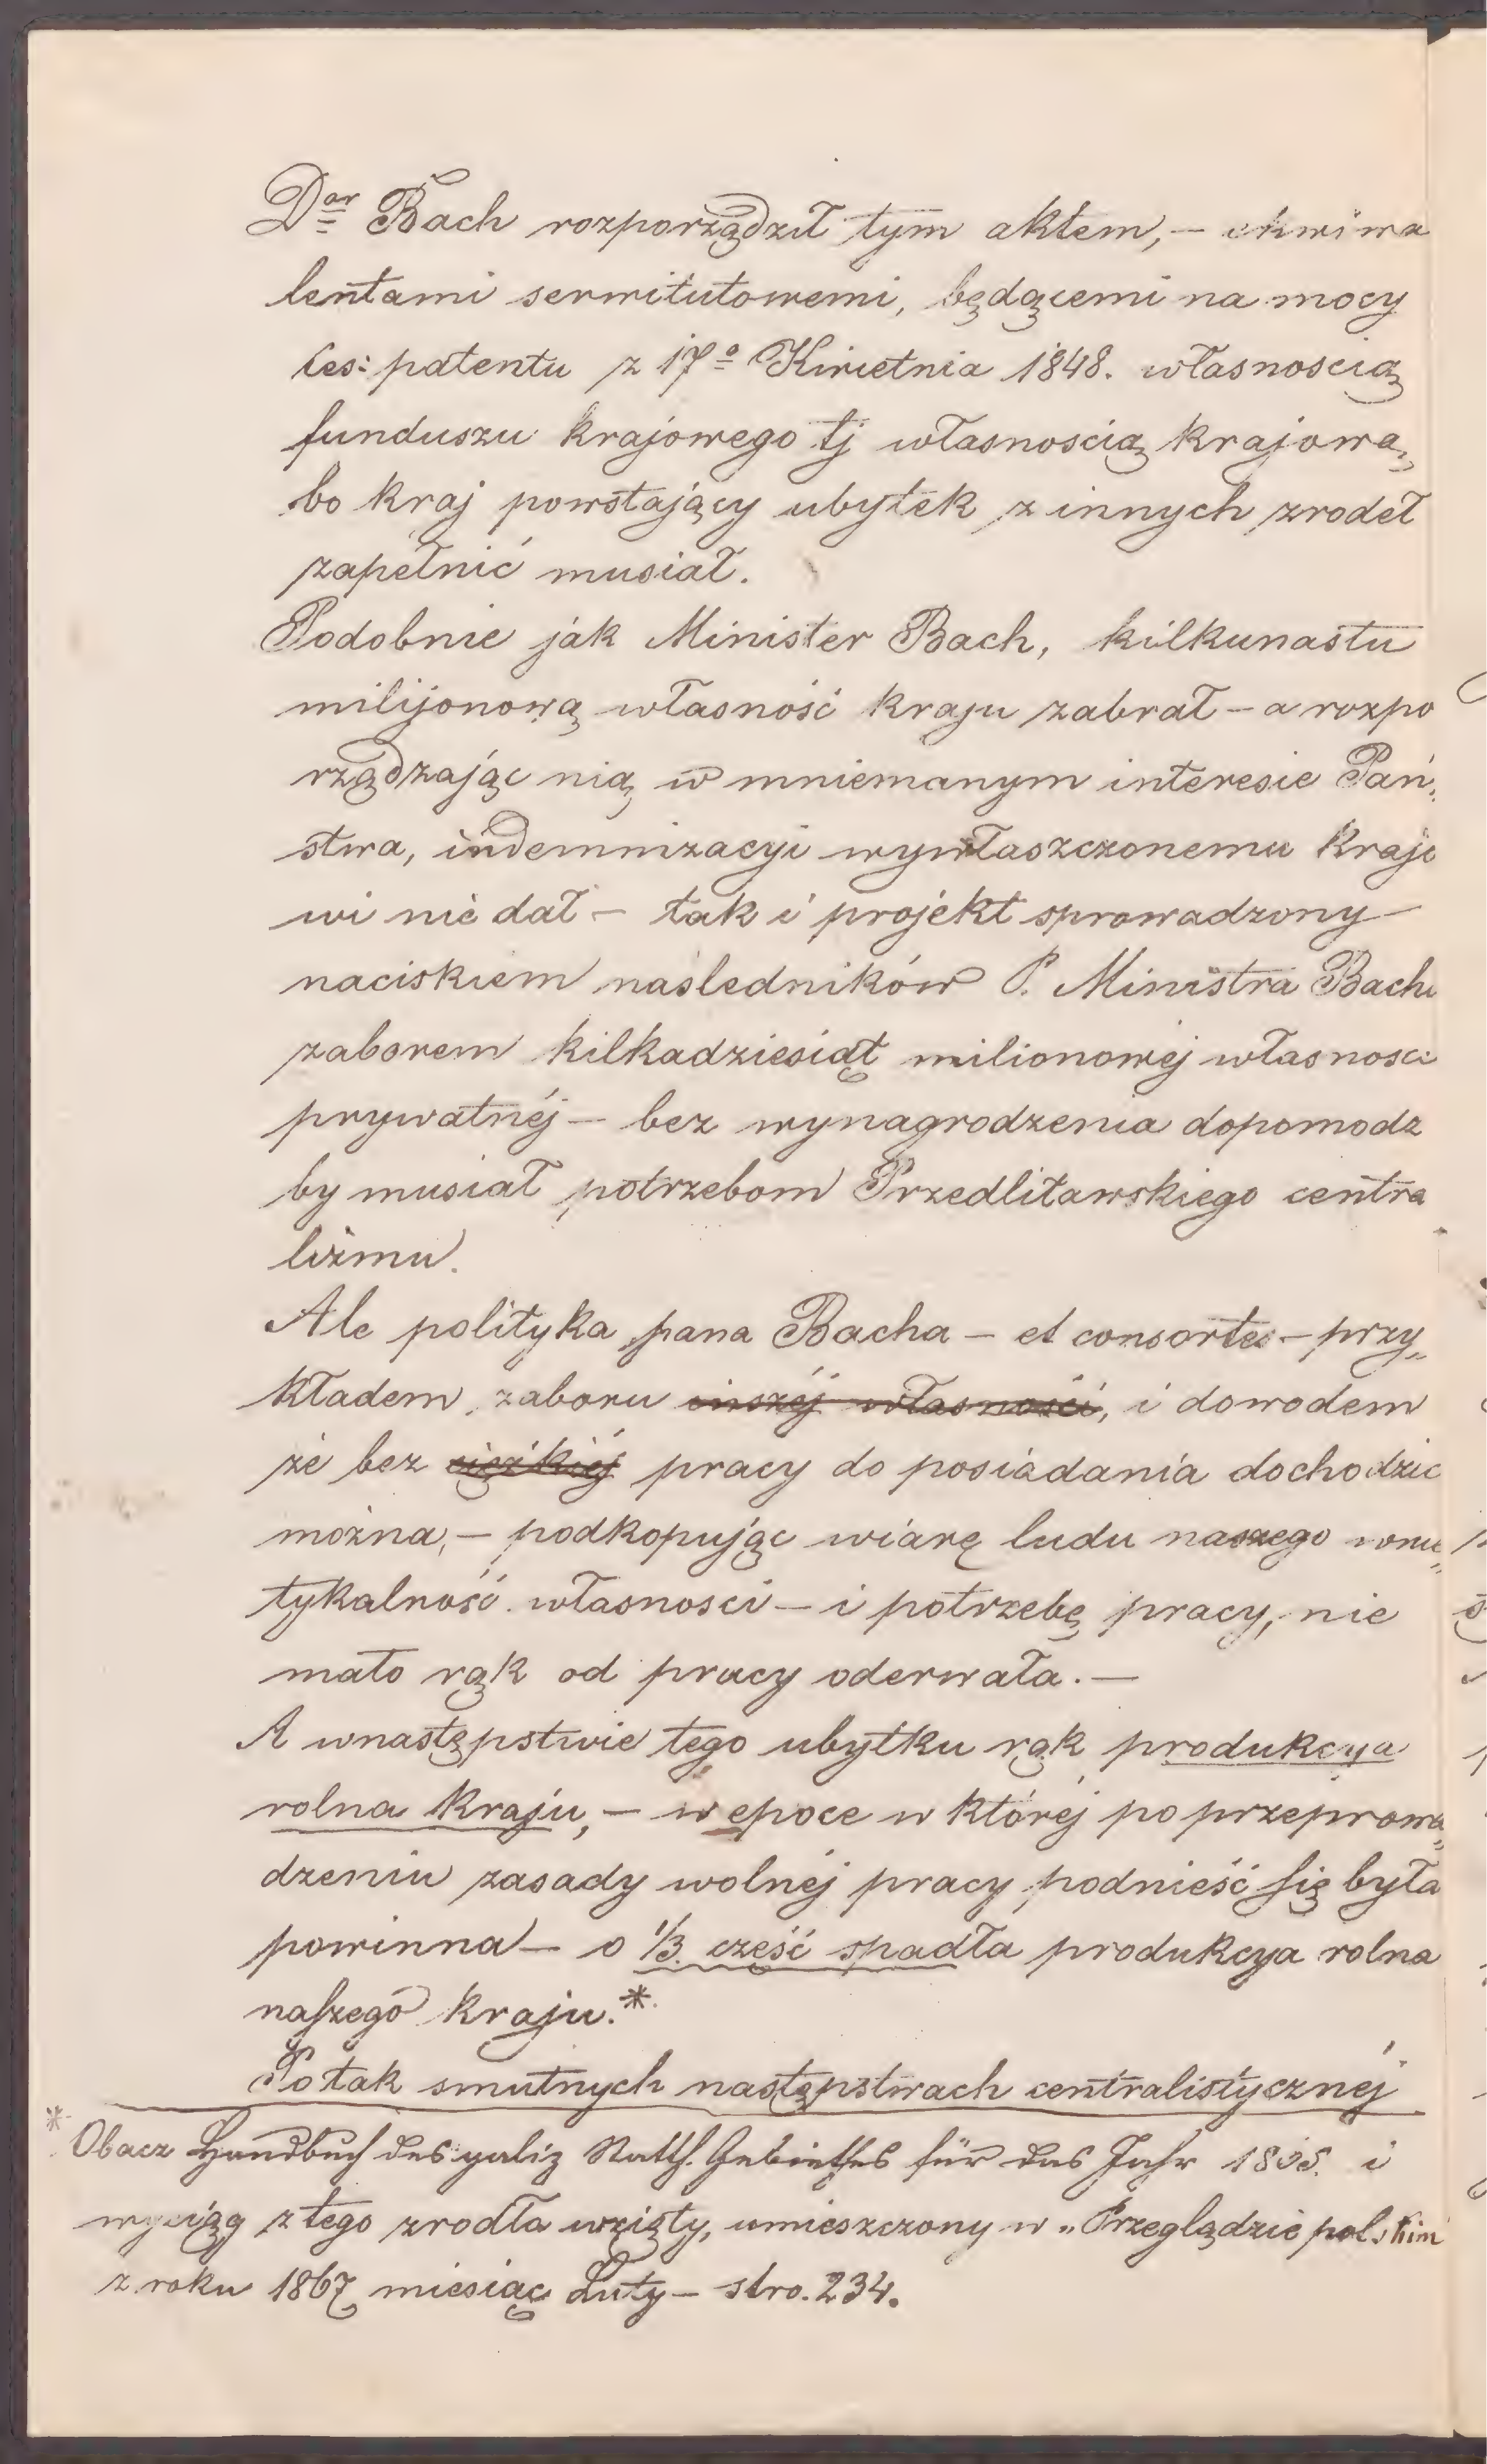 Dor Bach rozporządził tym aktem, – ekwiwa
lentami serwitutowemi, będącemi na mocy
Ces: patentu z 17o Kwietnia 1848. własnoscią
funduszu krajowego tj własnoscią krajową,
bo kraj powstający ubytek z innych zrodeł
zapełnić musiał.
Podobnie jak Minister Bach, kilkunastu
milijonową własność kraju zabrał – a rozpo
rządzając nią w mniemanym interesie Pań„
stwa, indemnizacyi wywłaszczonemu krajo
wi nie dał – tak i projekt sprowadzony
naciskiem następników P. Ministra Bacha
zaborem kilkadziesiąt milionowej własnosci
prywatnéj – bez wynagrodzenia dopomodz
by musiał potrzebom Przedlitawskiego centra
lizmu.
Ale polityka pana Bacha – et consortes – przy„
kładem zaboru inszéj własności, i dowodem
że bez ciężkiéj pracy do posiadania dochodzic
można, – podkopując wiarę ludu naszego wnie„
tykalność własnosci – i potrzebę pracy, nie
mało rąk od pracy oderwała. –
A wnastępstwie tego ubytku rąk produkcya
rolna kraju, – w epoce w której po przeprowa„
dzeniu zasady wolnéj pracy podnieść się była
powinna – o 1/3. część spadła produkcya rolna
naszego kraju.*
Po tak smutnych następstwach centralistycznéj
* Obacz Handbuch des galiz Statth. Gebiethes für das Jahr i
wyciąg z tego zrodła wzięty, umieszczony w „Przeglądzie polskim
z roku 1867 miesiąc Luty – stro. 234.